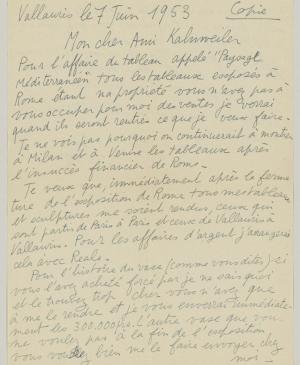 Vallauris le 7 Juin 1953 Copie
Mon cher Ami Kahnweiler
Pour l'affaire du tableau appelé "Paysage
Méditerranéen" tous les tableaux exposés à
Rome étant ma propriété vous n'avez pas à
vous occuper pour moi des ventes je verrai
quand ils seront rentrés ce que je veux faire.
Je ne vois pas pourquoi on continuerait à montrer
à Milan et à Venise les tableaux après
l'insuccès financier de Rome.
Je veux que, immédiatement après la ferme
ture de l'exposition de Rome tous mes tableaux
et sculptures me soient rendus, ceux qui
sont partis de Paris à Paris et ceux de Vallauris à
Vallauris. Pour les affaires d'argent j'arrangerai
cela avec Reale.
Pour l'histoire du vase (comme vous dites) si
vous l'avez acheté forcé par je ne sais qui
et le trouvez trop cher vous n'avez que
à me le rendre et je vous enverrai immédiate-
ment les 300.000frs. L'autre vase que vous
ne voulez pas à la fin de l'exposition
vous voudrez bien me le faire envoyer chez
moi -